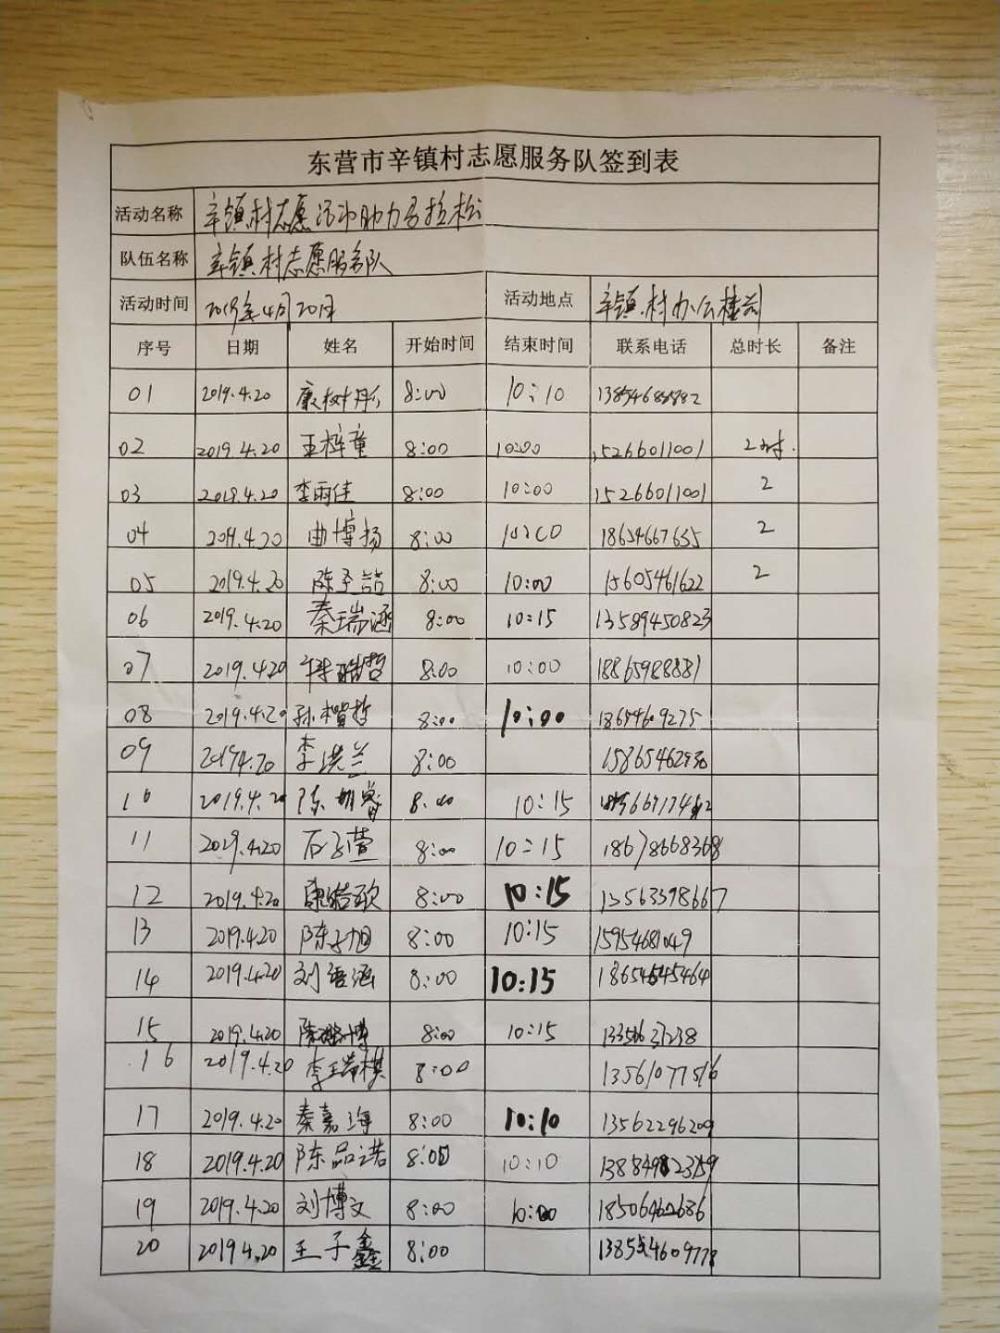 东营市辛镇村志愿服务队签到表
活动名称 辛镇村志愿活动助力马拉松
队伍名称 辛镇村志愿服务队
活动时间 2019年4月20日 活动地点 辛镇村办公楼前
序号 日期 姓名 开始时间 结束时间 联系电话 总时长 备注
01 2019.4.20 康树彤 8:00 10:10
02 2019.4.20 王梓童 8:00 10:00 15266011001 2小时.
03 2019.4.20 李雨佳 8:00 10:00 15266011001 2
04 2019.4.20 曲博扬 8:00 10:00 18654667655 2
05 2019.4.20 陈圣喆 8:00 10:00 15605461622 2
06 2019.4.20 秦瑞涵 8:00 10:15 13589450823
07 2019.4.20 8:00 10:00 18865988881
08 2019.4.20 孙楷哲 8:00 10:00 18654609275
09 2019.4.20 李洪兰 8:00
10 2019.4.20 陈明睿 8:00 10:15
11 2019.4.20 石子萱 8:00 10:15 18678668368
12 2019.4.20 康皓歌 8:00 10:15 13563398667
13 2019.4.20 陈子旭 8:00 10:15 15954681049
14 2019.4.20 刘语涵 8:00 10:15 18654545464
15 2019.4.20 8:00 10:15
16 2019.4.20 李玉棋 8:00 13561077516
17 2019.4.20 秦嘉海 8:00 10:10 13562296209
18 2019.4.20 陈品诺 8:00 10:10
19 2019.4.20 刘博文 8:00 10:00 18506462686
20 2019.4.20 王子鑫 8:00 13854609778